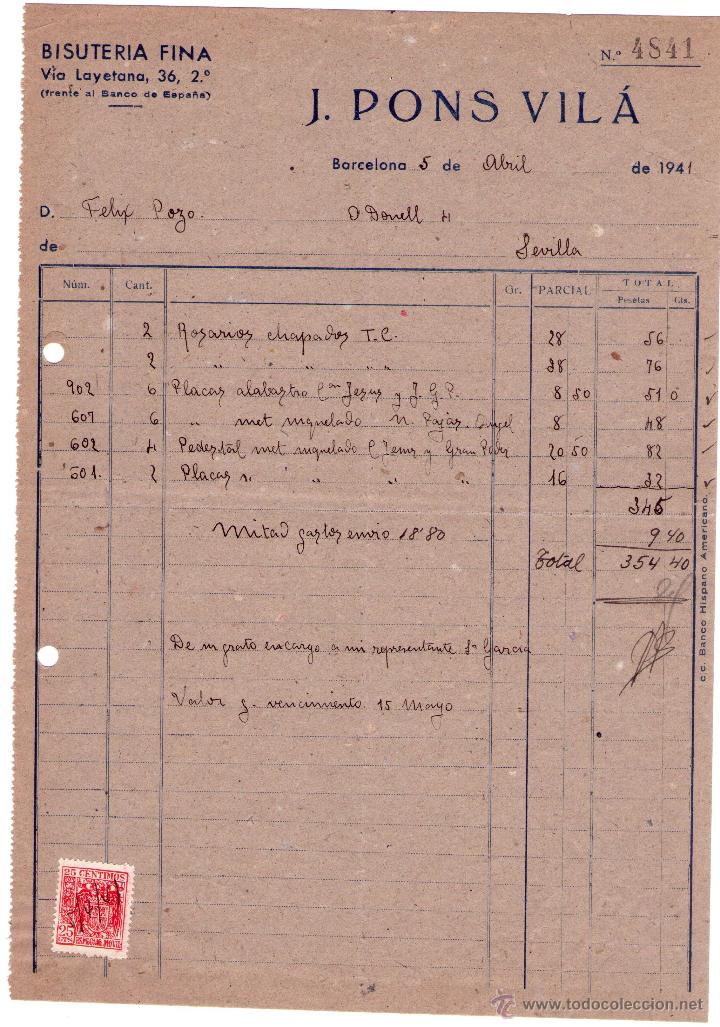 BISUTERIA FINA
Vía Layetana, 36, 2.º
(frente al Banco de España)
N.º 4841
J. PONS VILÁ
Barcelona 5 de Abril de 1941
D. Felix Pozo. O Donell 4
de Sevilla
Núm. Cant. Gr. PARCIAL TOTAL
Pesetas Cts.
2 Rosarios chapados T.C. 28 56
2 " " " " 38 76
902 6 Placas alabastro C Jesus y J. G. P. 8 50 51 0
607 6 " met niquelado N. Pajas Angel 8 48
602 4 Pedestal met niquelado C Jesus y Gran Poder 20 50 82
501. 2 Placas " " " " 16 32
345
Mitad gastos envio 18'80 9 40
Total 354 40
De m grato encargo a mi representante Sr Garcia
Valor y vencimiento 15 Mayo
c/c. Banco Hispano Americano.
25 CENTIMOS
25 CTS
ESPECIAL MOVIL
www.todocoleccion.net